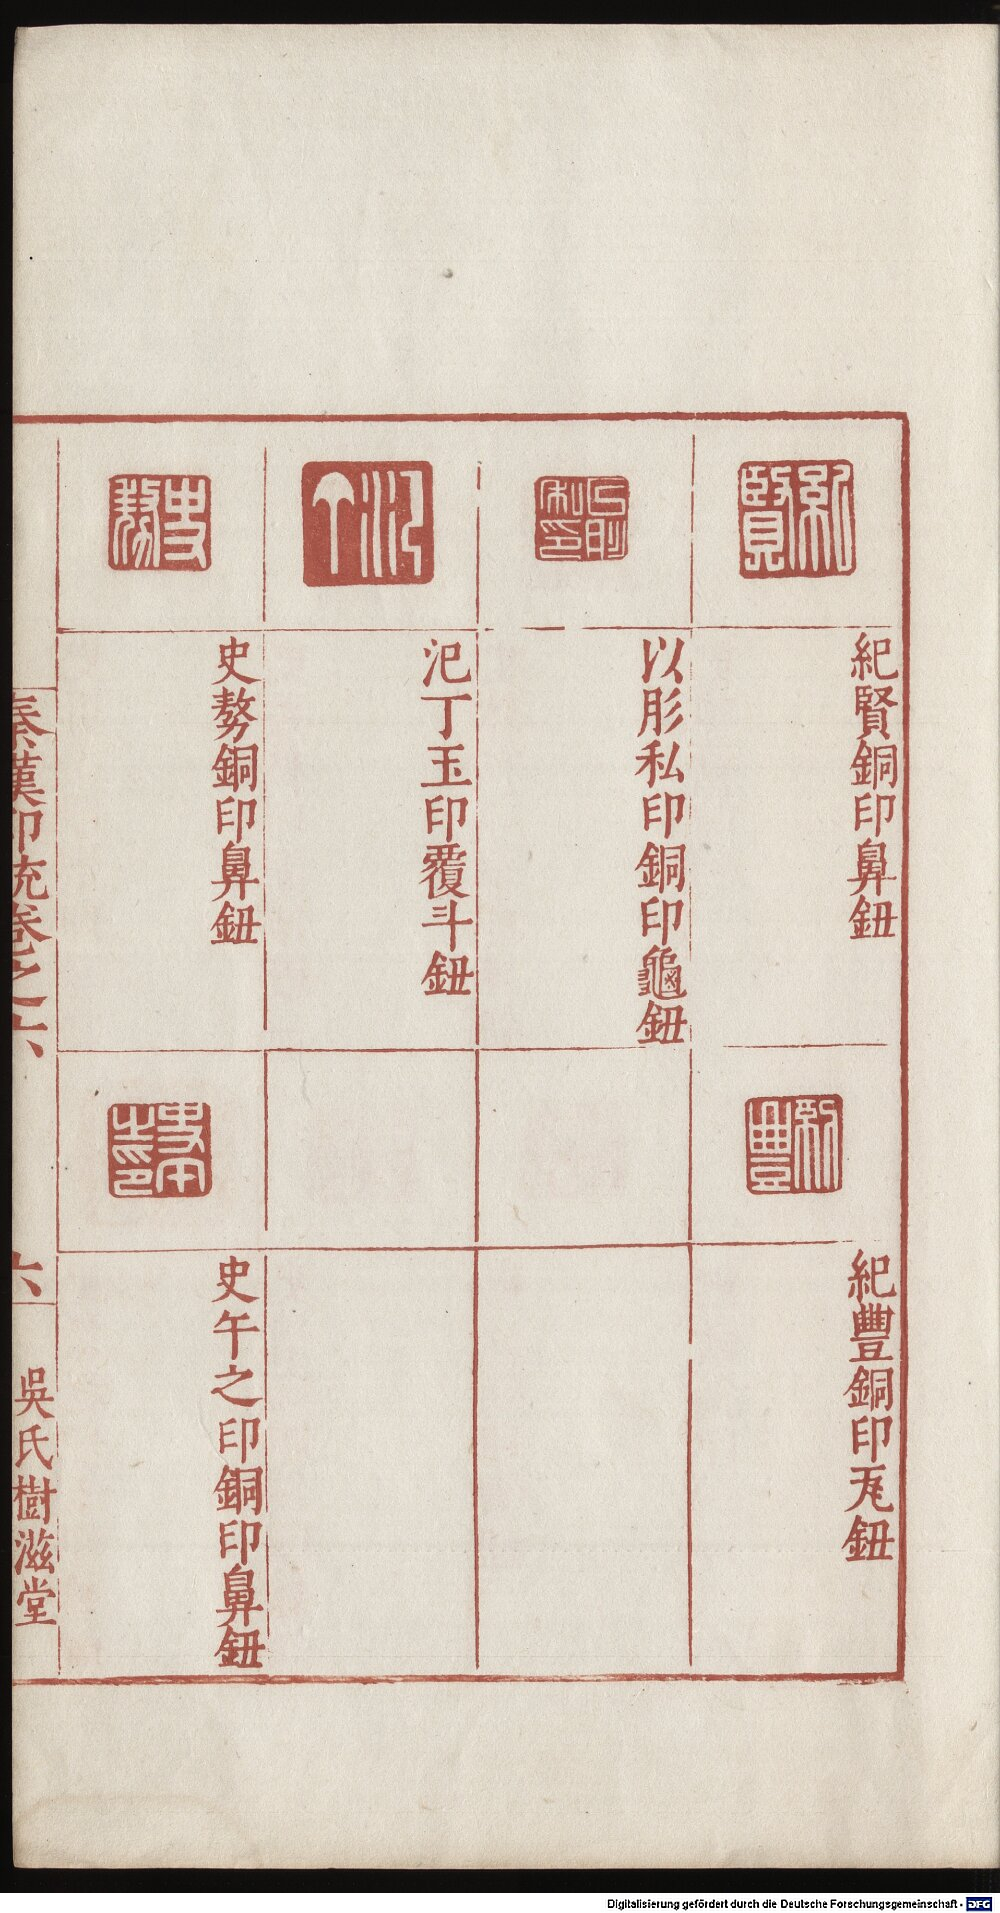 紀賢
紀賢銅印鼻鈕
紀豐
紀豐銅印瓦鈕
以肜私印
以肜私印銅印龜鈕
氾丁
氾丁玉印覆斗鈕
史驁
史骜銅印鼻鈕
史午之印
史午之印銅印鼻鈕
秦漢印統卷之六
六
吳氏樹滋堂
Digitalisierung gefördert durch die Deutsche Forschungsgemeinschaft - DFG